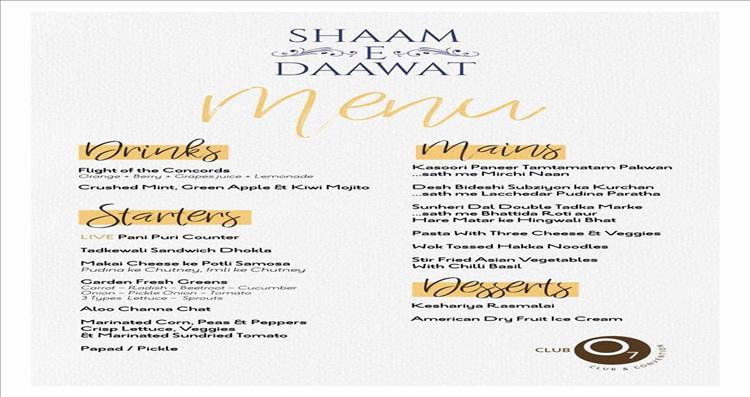 SHAAM
E
DAAWAT
Menu
Drinks
Flight of the Concords
Orange + Berry + Grapes juice + Lemonade
Crushed Mint, Green Apple & Kiwi Mojito
Starters
LIVE Pani Puri Counter
Tadkewali Sandwich Dhokla
Makai Cheese ke Potli Samosa
Pudina ke Chutney, Imli ke Chutney
Garden Fresh Greens
Carrot - Radish - Beetroot - Cucumber
Onion - Pickle Onion - Tomato
3 Types Lettuce - Sprouts
Aloo Channa Chat
Marinated Corn, Peas & Peppers
Crisp Lettuce, Veggies
& Marinated Sundried Tomato
Papad / Pickle
Mains
Kasoori Paneer Tamtamatam Pakwan
...sath me Mirchi Naan
Desh Bideshi Subziyon ka Kurchan
...sath me Lacchedar Pudina Paratha
Sunheri Dal Double Tadka Marke
...sath me Bhattida Roti aur
Hare Matar ke Hingwali Bhat
Pasta With Three Cheese & Veggies
Wok Tossed Hakka Noodles
Stir Fried Asian Vegetables
With Chilli Basil
Desserts
Keshariya Rasmalai
American Dry Fruit Ice Cream
CLUB O7
CLUB & CONVENTION